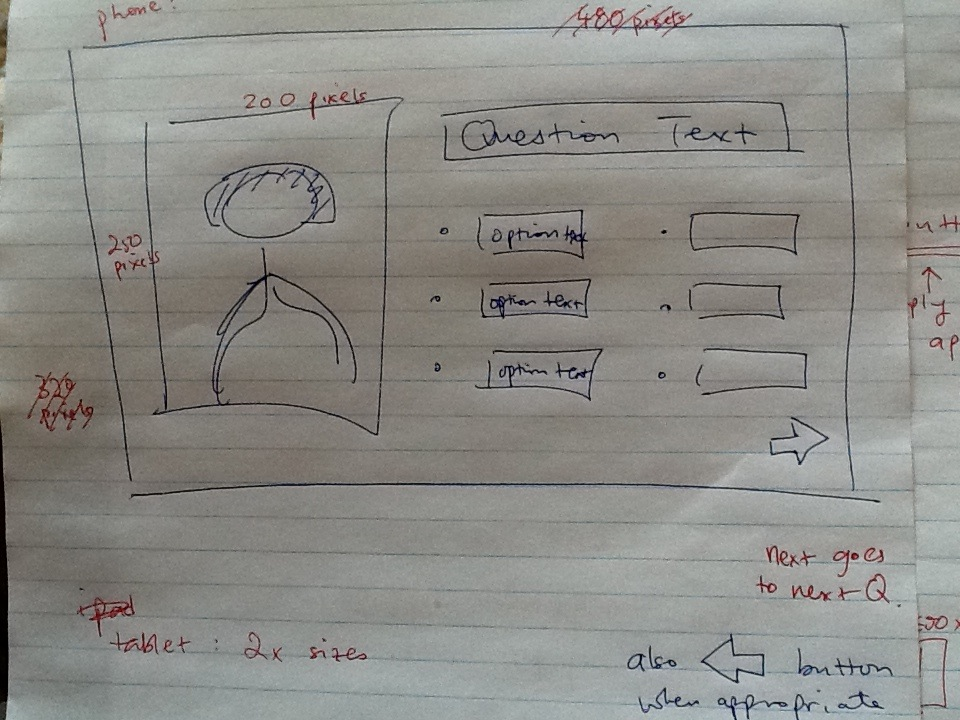 phone:
480 pixels
200 pixels
Question Text
250
pixels
option text
option text
option text
320
pixels
next goes
to next Q.
iPad
tablet: 2x sizes
also button
when appropriate
ply
ap